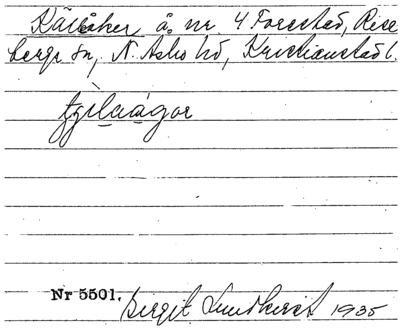 Källåker å nr. 4 Forestad, Rise
bergs sn, N. Asbo hd, Kristianstad l.
Nr 5501.
Birgit Lundkvist 1935